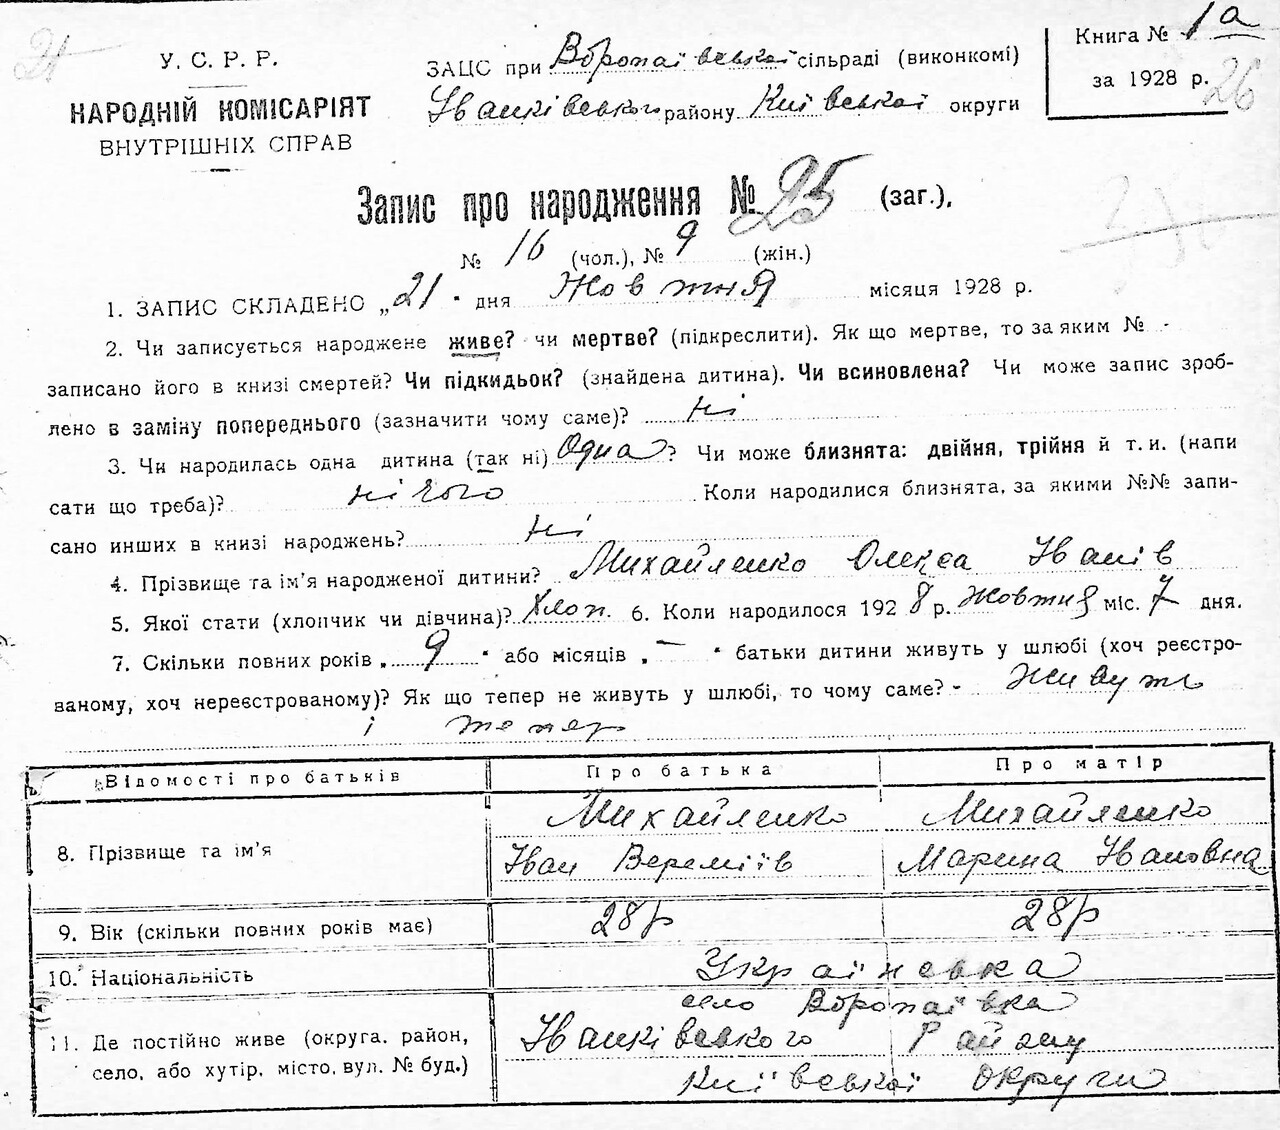 21
У. С. Р. Р.
НАРОДНІЙ КОМІСАРІЯТ
ВНУТРІШНІХ СПРАВ
ЗАЦС при Воропаївської сільраді (виконкомі)
Іванківського району Київської округи
Книга № 1а
за 1928 р.
26
Запис про народження № 25 (заг.),
№ 16 (чол.), № 9 (жін.)
1. ЗАПИС СКЛАДЕНО „21" дня Жовтня місяця 1928 р.
2. Чи записується народжене живе? чи мертве? (підкреслити). Як що мертве, то за яким № -
записано його в книзі смертей? Чи підкидьок? (знайдена дитина). Чи всиновлена? Чи може запис зроб-
лено в заміну попереднього (зазначити чому саме)? Ні
3. Чи народилась одна дитина (так ні) Одна? Чи може близнята: двійня, трійня й т. и. (напи
сати що треба)? нічого Коли народилися близнята, за якими №№ запи-
сано инших в книзі народжень? Ні
4. Прізвище та ім'я народженої дитини? Михайленко Олекса Іванів
5. Якої стати (хлопчик чи дівчина)? Хлоп. 6. Коли народилося 1928 р. Жовтня міс. 7 дня.
7. Скільки повних років „9" або місяців „—" батьки дитини живуть у шлюбі (хоч реєстро-
ваному, хоч нереєстрованому)? Як що тепер не живуть у шлюбі, то чому саме? - Живуть
і тепер
Відомості про батьків Про батька Про матір
8. Прізвище та ім'я Михайленко Михайленко
Іван Веремїїв Марина Івановна
9. Вік (скільки повних років має) 28р 28р
10. Національність Українська
село Воропаївка
11. Де постійно живе (округа, район, Іванківського Району
село, або хутір, місто, вул. № буд.) Київської округи